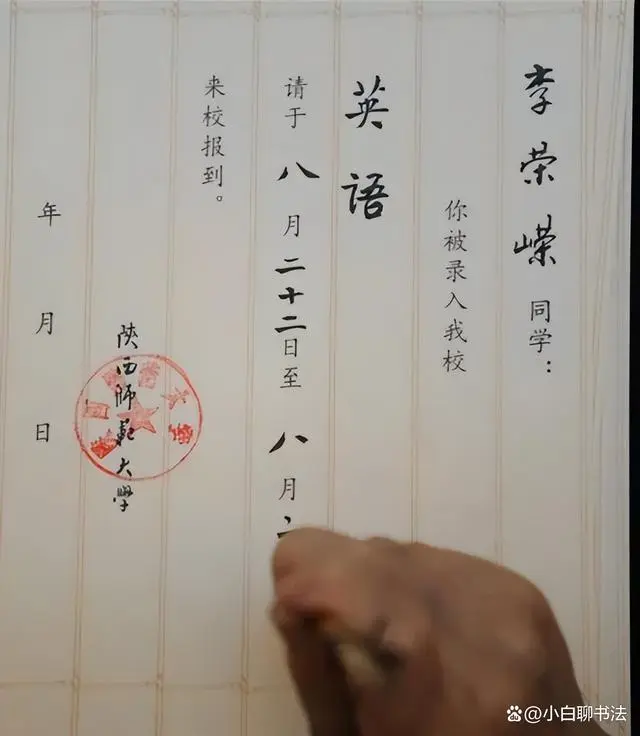 李荣嵘同学：
你被录入我校
英语
请于八月二十二日至八月二
来校报到。
陕西师范大学
年月日
@小白聊书法